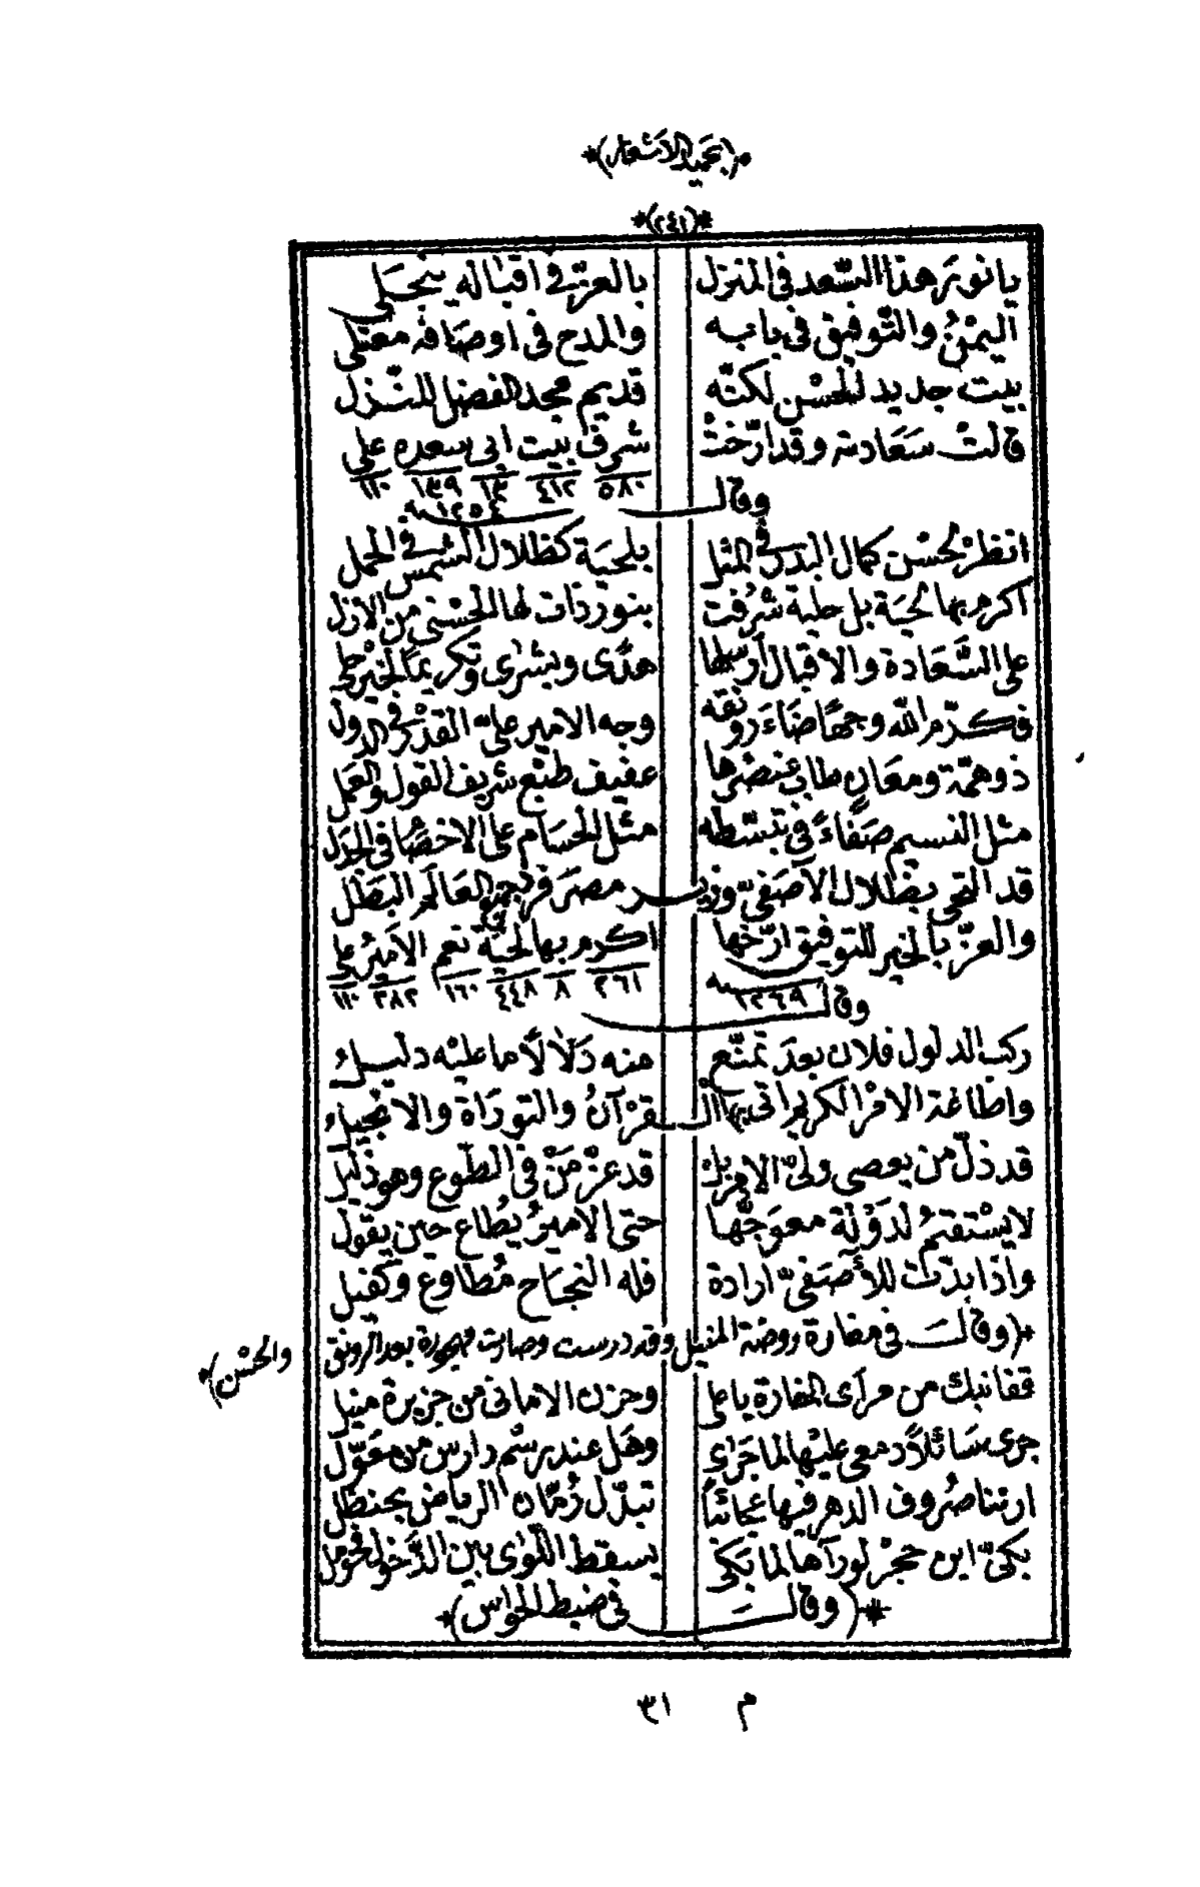 *(بحميد الاشعار)*
*(٢٤١)*
يا نور هذا السعد فى المنزل بالعزّ فى اقباله ينجلى
اليمْنُ والتّوفيق فى بابه والمدح فى اوصافه معتلى
بيت جديد للحسْن لكنّه قديم مجد الفضل للنّزل
قالتْ سَعَادته وقد ارّختْ شرف بيت ابى سعده على
٥٨٠ ٤١٢ ١٣ ١٣٩ ١١٠
وقال ١٢٥٤ سنه
انظرْ لحسْن كمال البدر فى المثل بلحيَة كظلال الشمس فى الحمل
اكرم بها لحيَة بل حلية شرُفت بنور ذات لها الحسْنى من الازل
على السَّعَادة والاقبال أرسلها هدًى وبشرى وتكريمًا لخير على
فكرّم الله وجهًا ضَاءَ رونقه وجه الامير علىّ القدْر فى الدول
ذو همّة ومعان طاب عنصرُها عفيف طبْع شريف القول والعمل
مثل النسيم صَفَاءً فى تبسّطه مثل الحسَام على الاخصَام فى الجدَل
قد التحى بظلال الآصَفىّ وزير مصرَ فرْد العَالم البَطل
والعزّ بالخير للتوفيق ارّخها اكرم بها لحيَة نعم الاميْر على
٢٦١ ٨ ٤٤٨ ١٦٠ ٢٨٢ ١١٠
وقال ١٢٦٩ سنه
ركب الدلول فلان بعدَ تمنّع منه دَلَالًا ما عليْه دليلُ
واطاعة الامْر الكريم اتى بها الْـقرْآنُ والتورَاة والانجيلُ
قد ذلّ من يعصى ولىّ الامر بك قد عزّ مَنْ فى الطّوع وهو ذليل
لا يسْتقيمُ لدَوْلة معوَجّها حتى الاميرُ يُطاع حين يقول
واذا بدَتْ للأصَفىّ ارادة فله النجَاح مُطاوع وكفيل
*(وقالَ فى مغارة روضة المنيل وقد درست وصارت مهجورة بعد الرونق والحسْن)*
قفا نبك من مرآى المغارة يا على وحزن الامانى من جزيرة منيل
جرى سَائلًا دمعى عليْها لما جَرَى وهَل عند رسْم دارس من معَوّل
ارتنا صُروف الدهر فيها عجائبًا تبدّل رُمّان الرياض بحنظل
بكىّ ابن حجرْ لو رآها لما بَكى بسقط اللّوى بين الدَّخول فحومل
*(وقالَ فى ضبط الحواس)*
م ٣١